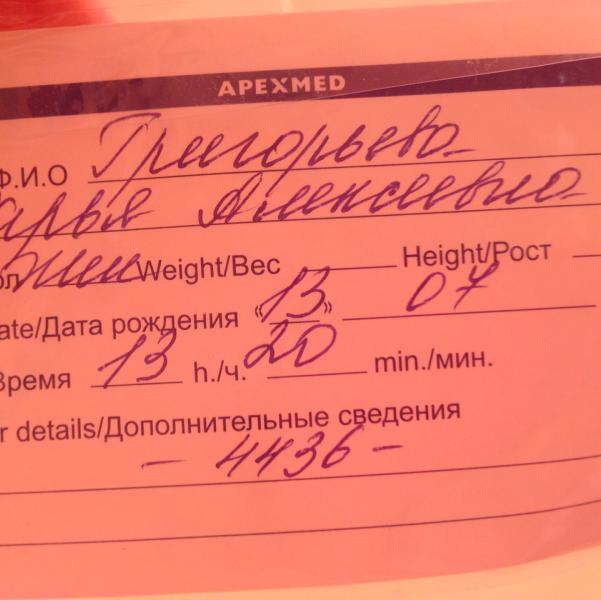 APEXMED
Ф.И.О Григорьева
арья Алексеевна
ол жен Weight/Вес Height/Рост
ate/Дата рождения «13» 07
Время 13 h./ч. 20 min./мин.
r details/Дополнительные сведения
- 4436 -